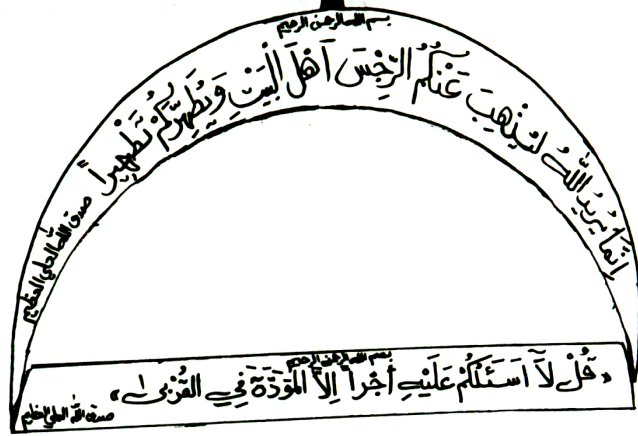 بسم الله الرحمن الرحيم
اِنَّمَا يُرِيدُ اللّٰهُ لِيُذْهِبَ عَنْكُمُ الرِّجْسَ اَهْلَ الْبَيْتِ وَيُطَهِّرَكُمْ تَطْهِيراً
صدق الله العلي العظيم
بسم الله الرحمن الرحيم
«قُلْ لاَ اَسَئَلُكُمْ عَلَيْهِ أَجْراً اِلاَّ الْمَوَدَّةَ فِي الْقُرْبىٰ»
صدق الله العلي العظيم